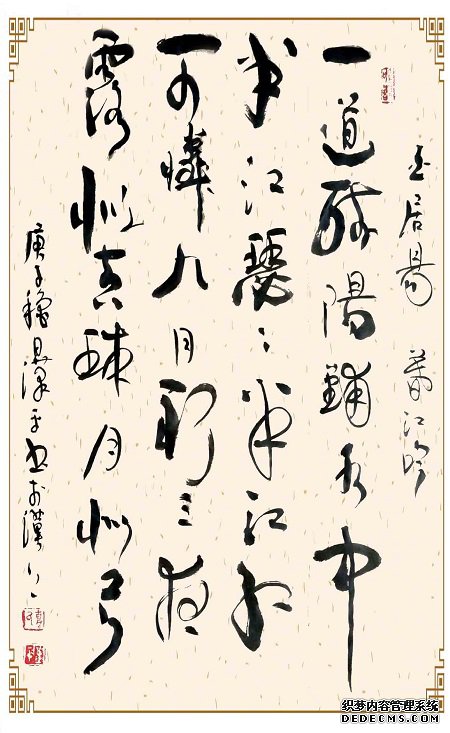 白居易 暮江吟
一道残陽鋪水中
半江瑟〻半江红
可憐九月初三夜
露似真珠月似弓
庚子 平书於漢上
织梦内容管理系统
DEDECMS.COM